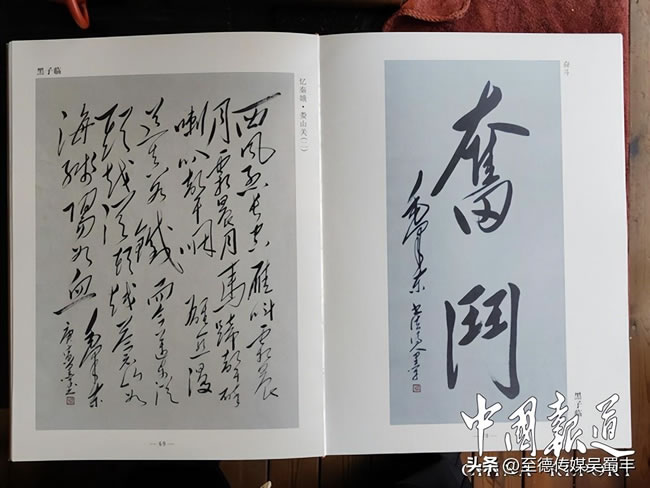 黑子临
忆秦娥·娄山关(二)
西风烈长空雁叫霜晨
月霜晨月马蹄声碎
喇叭声咽 雄关漫
道真如铁 而今迈步从
头越从头越苍山如
海残阳如血 毛泽东
奋斗
奮鬥
毛泽东
黑子临
中國報道
CHINA REPORT
头条 @至德传媒吴蜀丰